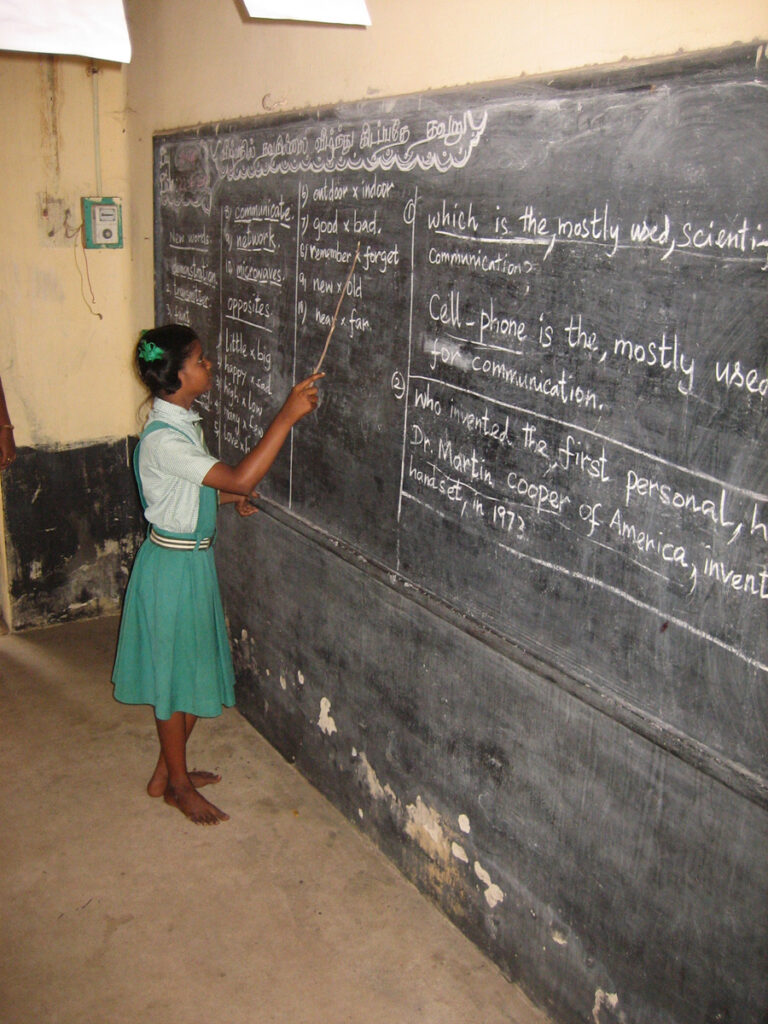 வீழ்வதில் தவறில்லை வீழ்ந்து கிடப்பதே தவறு
New words.
demonstration
2. transmitter
3. faint
8) communicate.
9) network.
10) microwaves.
opposites
little x big
happy x sad
high x low
6) outdoor x indoor
7) good x bad.
8) remember x forget
9) new x old
10) near x far
① which is the, mostly used, scienti
communication?
Cell-phone is the, mostly used
for communication.
② who invented the, first personal, h
Dr. Martin Cooper of America, invent
handset, in 1973